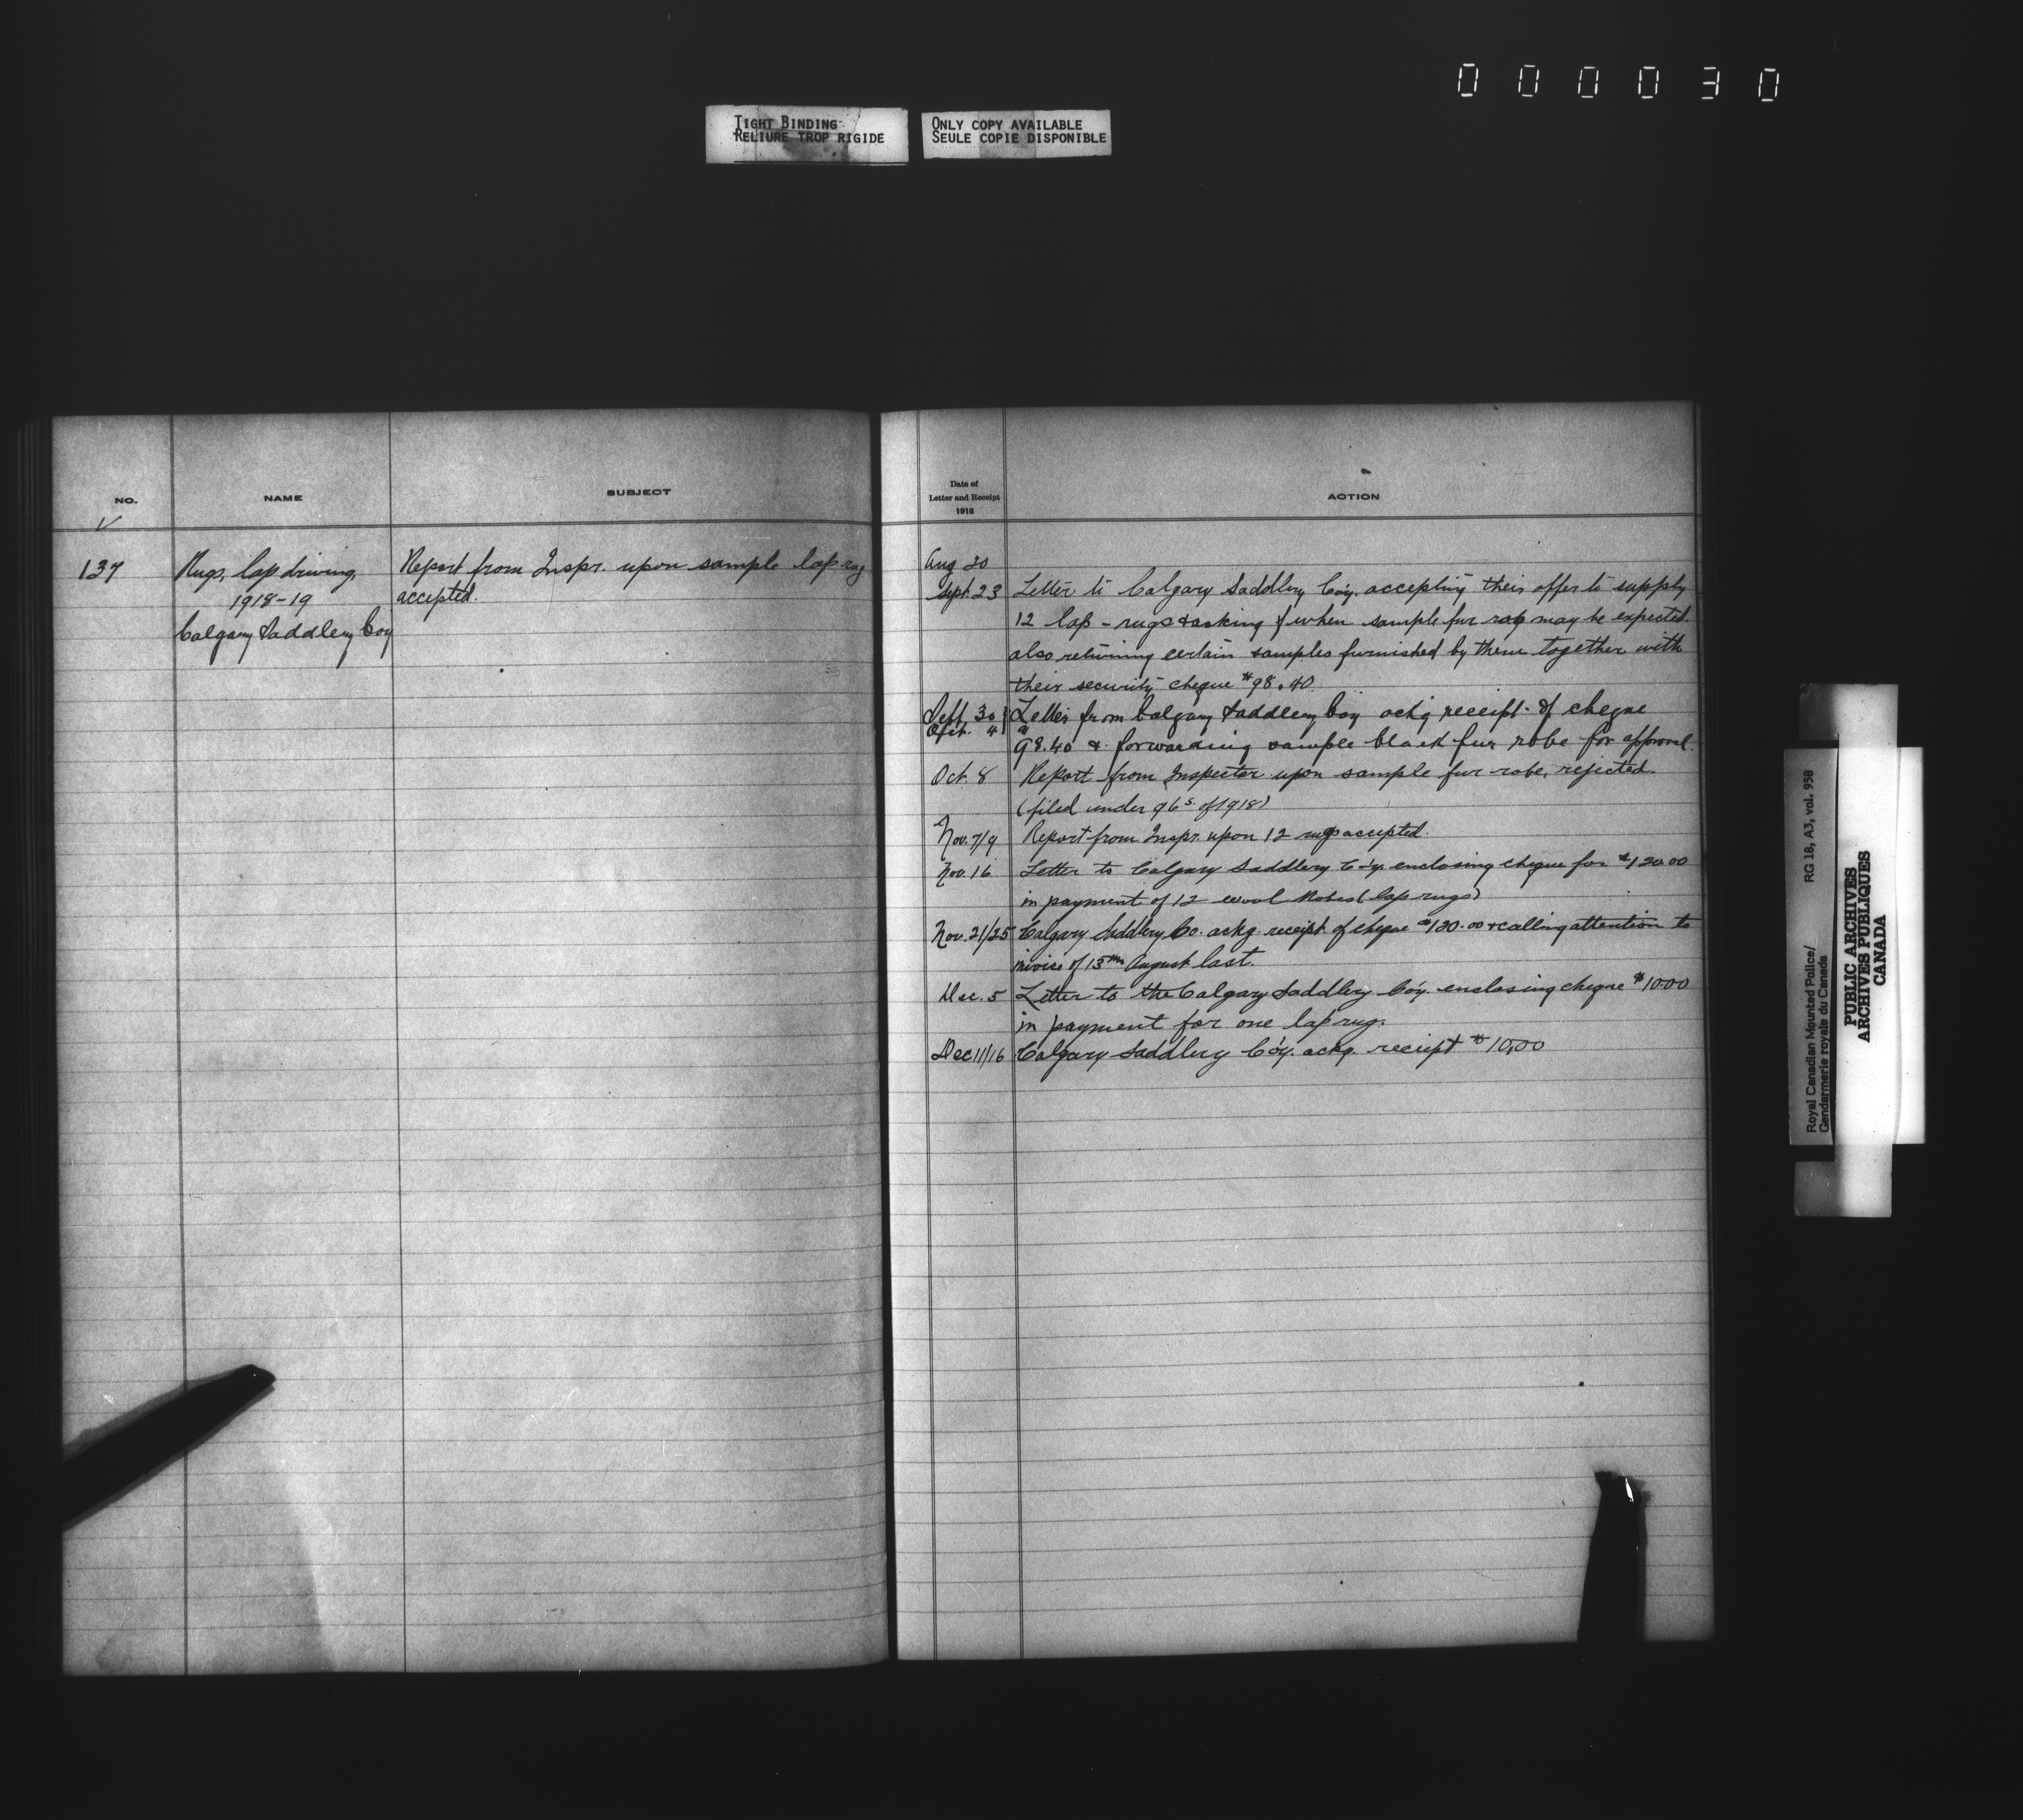 000030
TIGHT BINDING
RELIURE TROP RIGIDE
ONLY COPY AVAILABLE
SEULE COPIE DISPONIBLE
NO.
NAME
SUBJECT
137
Rugs, lap driving,
1918-19
Calgary Saddlery Coy
Report from Inspr. upon sample lap rug
accepted.
Date of
Letter and Receipt
1918
ACTION
Aug 30
Sept. 23 Letter to Calgary Saddlery Co'y. accepting their offer to supply
12 lap-rugs & asking when sample fur robe may be expected.
also returning certain samples furnished by them together with
their security cheque $98.40.
Sept. 30 Letter from Calgary Saddlery Coy ackg receipt of cheque
Oct. 4 $98.40 & forwarding sample black fur robe for approval.
Oct. 8 Report from Inspector upon sample fur robe, rejected.
(filed under 96 S. of 1918)
Nov. 7/9 Report from Inspr. upon 12 rugs accepted.
Nov. 16 Letter to Calgary Saddlery Co'y. enclosing cheque for $120.00
in payment of 12 wool Robes (lap rugs)
Nov. 21/25 Calgary Saddlery Co. ackg. receipt of cheque $120.00 & calling attention to
invoice of 13th August last.
Dec. 5 Letter to the Calgary Saddlery Co'y. enclosing cheque $10.00
in payment for one lap rug.
Dec 11/16 Calgary Saddlery Co'y. ackg. receipt $10.00
Royal Canadian Mounted Police/ RG 18, A3, vol. 958
Gendarmerie royale du Canada
PUBLIC ARCHIVES
ARCHIVES PUBLIQUES
CANADA